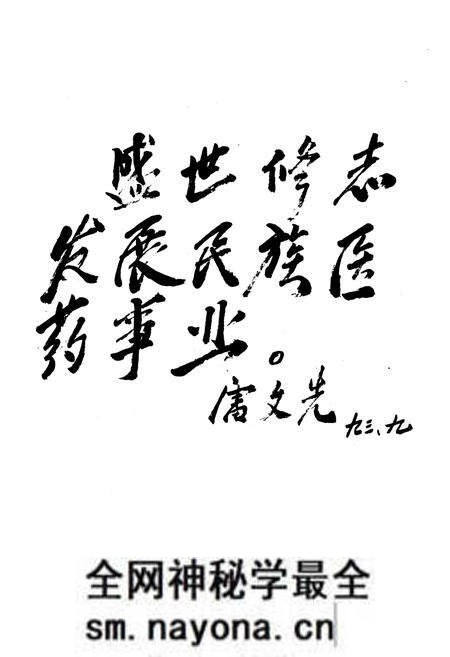 盛世修志
发展民族医
药事业。
富文先
九三、九
全网神秘学最全
sm.nayona.cn